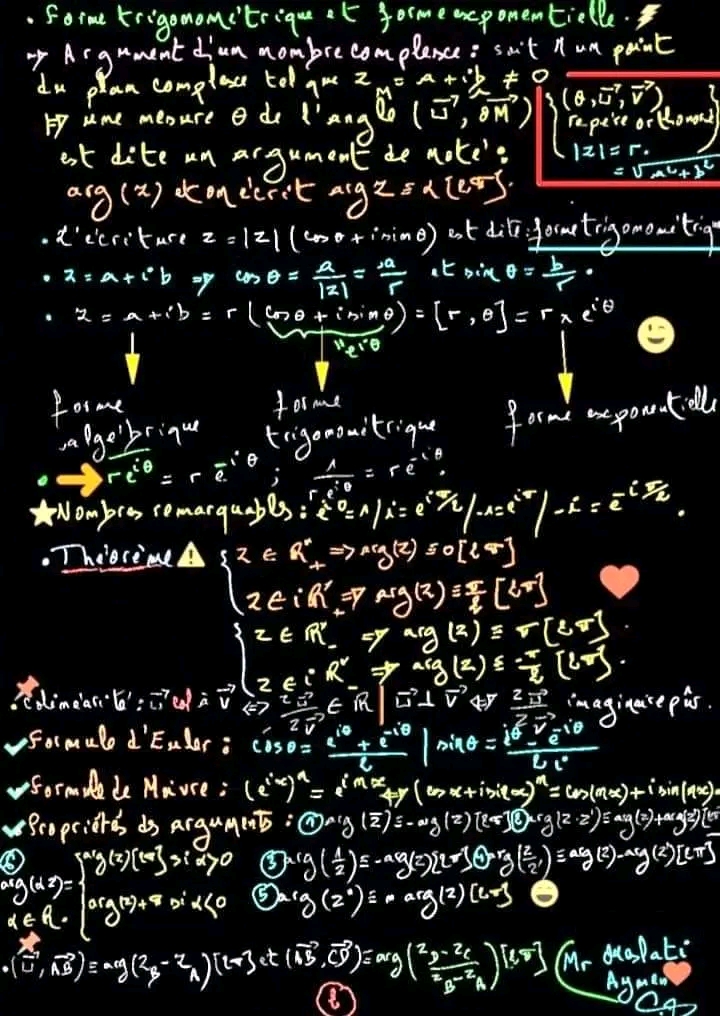 • Forme trigonométrique et forme exponentielle.
⇒ Argument d'un nombre complexe : soit M un point
du plan complexe tel que z_M = a + ib ≠ 0
⇒ une mesure θ de l'angle (u⃗, OM⃗)
est dite un argument de noté :
arg(z) et on écrit arg z ≡ α [2π].
(O, u⃗, v⃗)
repère orthonormé
|z| = r.
= √a² + b²
• L'écriture z = |z| (cos θ + i sin θ) est dite : forme trigonométriqu
• z = a + ib ⇒ cos θ = a/|z| = a/r et sin θ = b/r .
• z = a + ib = r (cos θ + i sin θ) = [r, θ] = r × e^{iθ}
"e^{iθ}
forme algébrique
forme trigonométrique
forme exponentielle
• → re^{iθ} = r e^{-iθ} ; 1/(r e^{iθ}) = r e^{-iθ} .
★ Nombres remarquables : e^{i0} = 1 / i = e^{iπ/2} / -1 = e^{iπ} / -i = e^{-iπ/2} .
• Théorème ⚠
z ∈ R*₊ ⇒ arg(z) ≡ 0 [2π]
z ∈ iR*₊ ⇒ arg(z) ≡ π/2 [2π]
z ∈ R*₋ ⇒ arg(z) ≡ π [2π] .
z ∈ iR*₋ ⇒ arg(z) ≡ -π/2 [2π] .
• Colinéarité : u⃗ col à v⃗ ⇔ z_u⃗/z_v⃗ ∈ R | u⃗ ⊥ v⃗ ⇔ z_u⃗/z_v⃗ imaginaire pûr.
✓ Formule d'Euler : cos θ = (e^{iθ} + e^{-iθ})/2 | sin θ = (e^{iθ} - e^{-iθ})/2i
✓ Formule de Moivre : (e^{ix})^n = e^{inx} ⇔ (cos x + i sin x)^n = cos(nx) + i sin(nx).
✓ Propriétés ds arguments : ① arg(z̄) ≡ -arg(z) [2π] ② arg(z·z') ≡ arg(z) + arg(z') [2π
③ arg(1/z) ≡ -arg(z) [2π] ④ arg(z/z') ≡ arg(z) - arg(z') [2π]
⑤ arg(zⁿ) ≡ n arg(z) [2π]
⑥
arg(αz) =
α ∈ R.
arg(z) [2π] si α > 0
arg(z) + π si α < 0
• (u⃗, AB⃗) ≡ arg(z_B - z_A) [2π] et (AB⃗, CD⃗) ≡ arg((z_D - z_C)/(z_B - z_A)) [2π]
Mr
Aymen
2